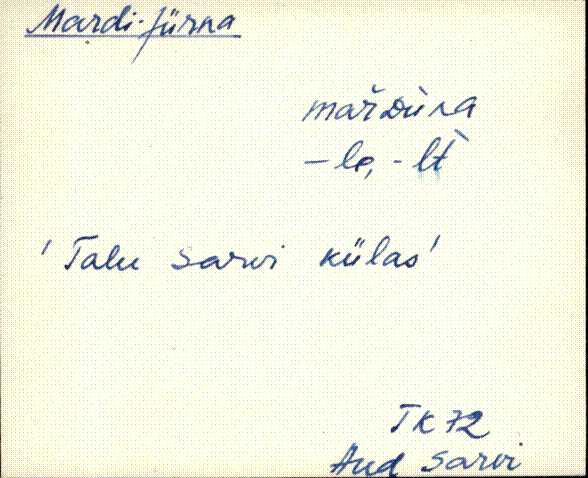 Mardi-Jürna
-le, -lt
'Talu Sarvi külas'
TK 72
Aud Sarvi